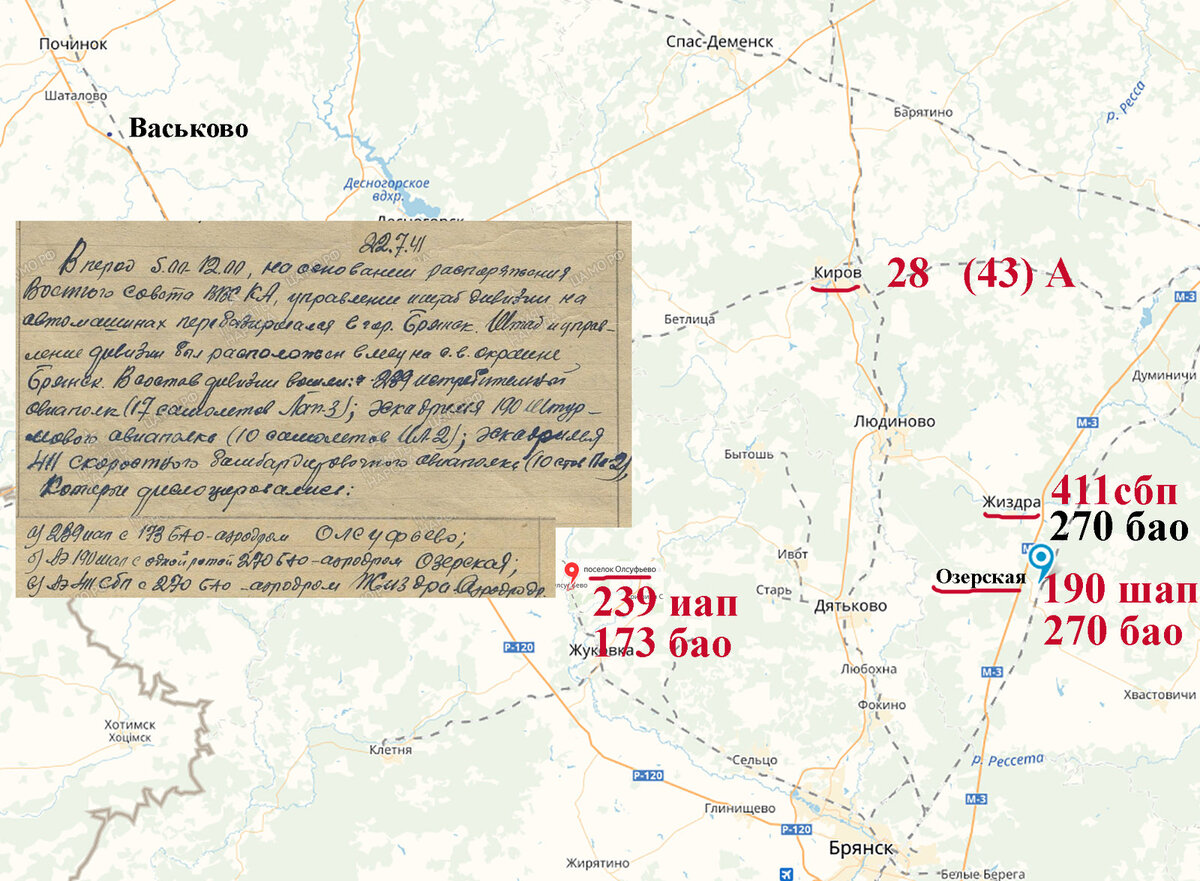 Починок
Спас-Деменск
Шаталово
Барятино
р. Ресса
Васьково
Десногорское
вдхр.
Десногорск
22.7.41
В период 5.00-12.00, на основании распоряжения
совета ВВС КА, управление и штаб дивизии на
автомашинах в гор. Брянск. Штаб и управ-
ление дивизии был расположен в лесу на с.в. окраине
Брянск. В состав дивизии вошли: 239 истребительный
авиаполк (17 самолетов Лагг-3); эскадрилья 190 Штур-
мового авиаполка (10 самолетов ИЛ-2); эскадрилья
411 скоростного бомбардировочного авиаполка (10 Пе-2),
Которые дислоцировались:
а) 239 иап с 173 БАО - аэродром ОЛСУФЬЕВО;
б) АЭ 190 шап с одной ротой 270 БАО - аэродром ОЗЕРСКАЯ;
с) АЭ 411 СБП с 270 БАО - аэродром Жиздра
ЦАМО.РФ
Киров
28 (43) А
М-3
Бетлица
Думиничи
М-3
Людиново
Бытошь
Жиздра
411сбп
270 бао
Ивот
поселок Олсуфьево
Озерская
190 шап
270 бао
239 иап
173 бао
Старь
Дятьково
Р-120
Жуковка
Любохна
М-3
Хвастовичи
Фокино
Хотимск
Хоцімск
Клетня
Сельцо
р. Рессета
Р-120
М-3
Глинищево
Р-120
Брянск
Жирятино
Белые Берега